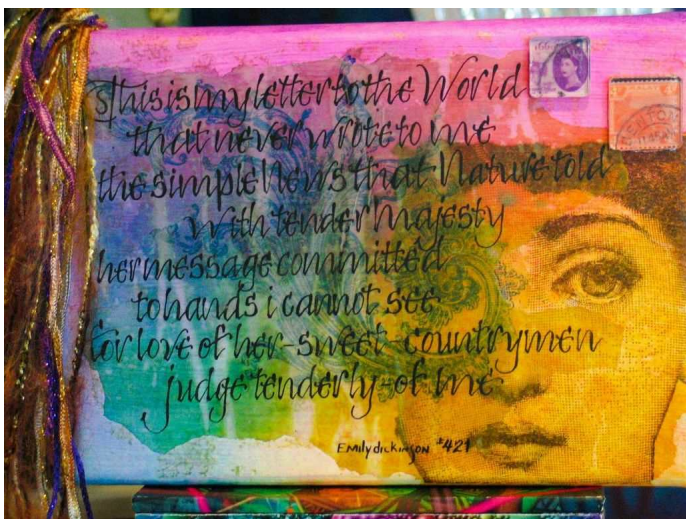 This is my letter to the World
that never wrote to me
the simple News that Nature told
with tender Majesty
her message committed
to hands i cannot see
for love of her-sweet-countrymen
judge tenderly-of me
Emily dickinson #421